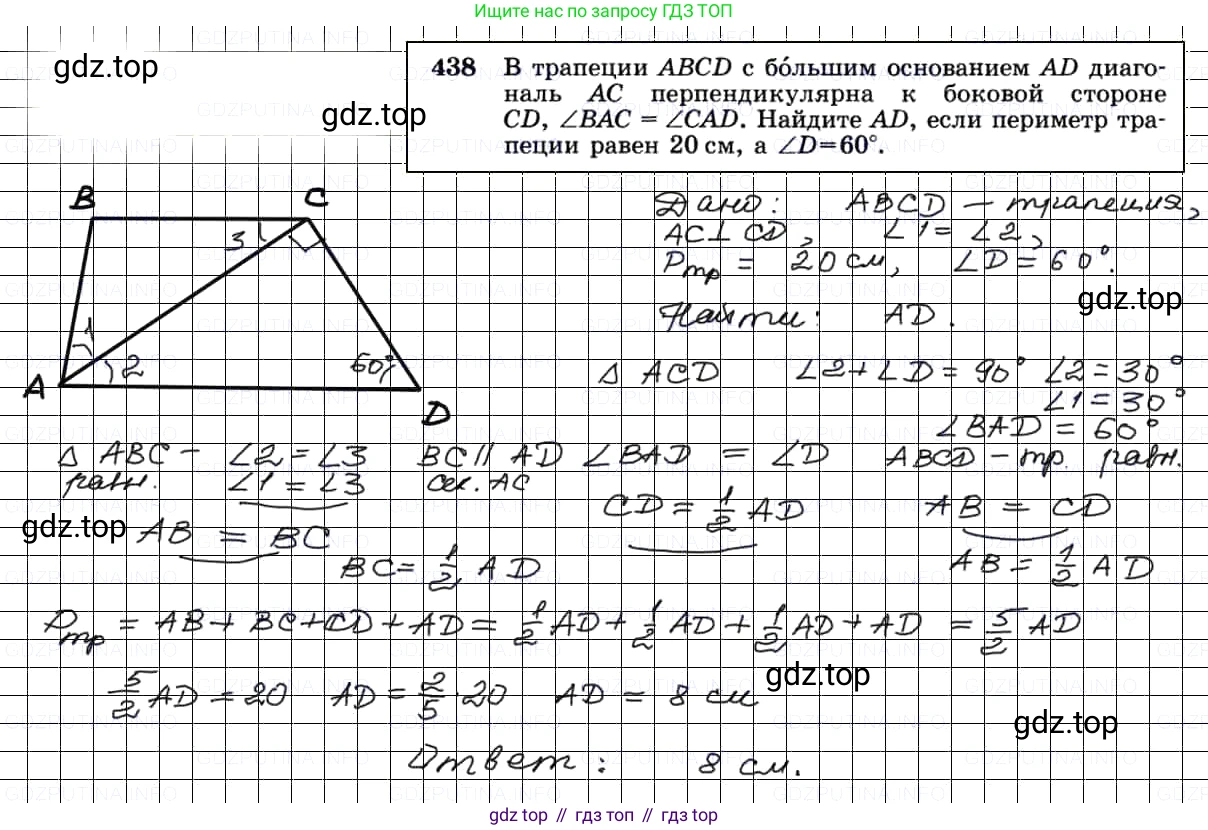 Ищите нас по запросу ГДЗ ТОП
438 В трапеции ABCD с бо́льшим основанием AD диаго-
наль AC перпендикулярна к боковой стороне
CD, ∠BAC = ∠CAD. Найдите AD, если периметр тра-
пеции равен 20 см, а ∠D=60°.
gdz.top
gdz.top
B C
3
1
2
60°
A
D
Дано: ABCD – трапеция,
AC⊥CD, ∠1 = ∠2,
Pтр = 20 см, ∠D = 60°.
gdz.top
Найти: AD.
△ ACD ∠2+∠D = 90° ∠2 = 30°
∠1 = 30°
∠BAD = 60°
△ ABC – ∠2 = ∠3 BC ∥ AD ∠BAD = ∠D ABCD – тр. равн.
равн. ∠1 = ∠3 сек. AC
CD = 1/2 AD AB = CD
gdz.top
AB = BC
BC = 1/2 AD AB = 1/2 AD
Pтр = AB + BC + CD + AD = 1/2 AD + 1/2 AD + 1/2 AD + AD = 5/2 AD
gdz.top
5/2 AD = 20 AD = 2/5 · 20 AD = 8 см
gdz.top
Ответ: 8 см.
gdz top // гдз топ // gdz top